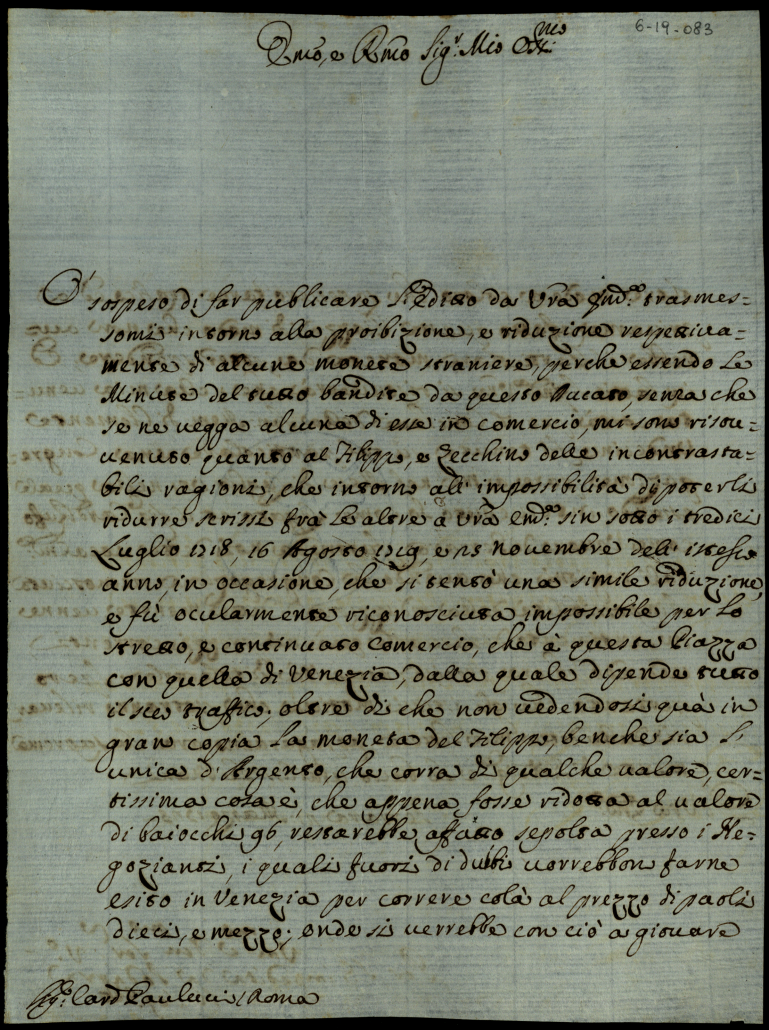 6-19-083
Emo, e Rmo Sigr. Mio
O' sospeso di far publicare l'Editto da Vra Em.a trasmes=
somi intorno alla proibizione, e riduzione respettiua=
mente di alcune monete straniere, perche essendo Le
Minute del tutto bandite da questo Ducato, senza che
se ne uegga alcuna di esse in comercio, mi sono risou=
uenuto quanto al Filippo, e Zecchino delle incontrasta=
bili ragioni, che intorno all' impossibilità di poterli
ridurre scrissi frà Le altre à Vra Em.a sin sotto i tredici
Luglio 1718, 16 Agosto 1719, e 25 novembre dell' istesso
anno, in occasione, che si tentò una simile riduzione,
e fù ocularmente riconosciuta impossibile per Lo
stretto, e continuato Comercio, che à questa Piazza
con quella di Venezia, dalla quale dipende tutto
il suo traffico; oltre di che non uedendosi quà in
gran copia La moneta del Filippo, benche sia L'
unica d'Argento, che corra di qualche ualore, cer=
tissima cosa è, che appena fosse ridotta al ualore
di baiocchi 96, restarebbe affatto sepolta presso i Ne=
gozianti, i quali fuori di dubio uorrebbon farne
esito in Venezia per correre colà al prezzo di paoli
dieci, e mezzo; onde si uerrebbe con ciò a giouare
Sig.r Card Paulucci / Roma